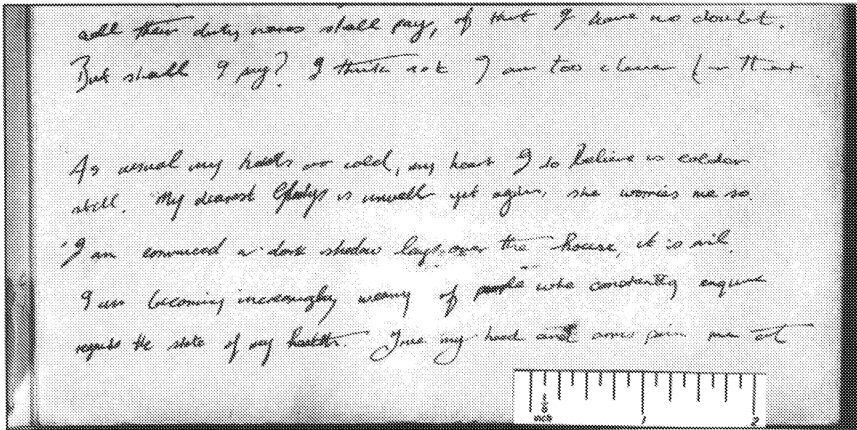 all shall pay, of that I have no doubt.
But shall I pay? I think not I am too clever for that.
As usual my hands are cold, my heart I do believe is colder
still. My dearest Gladys is unwell yet again, she worries me so.
I am convinced a dark shadow lays over the house, it is evil.
I am becoming increasingly weary of people who constantly enquire
regards the state of my health. True my head and arms pain me at
1/8 inch 1 2